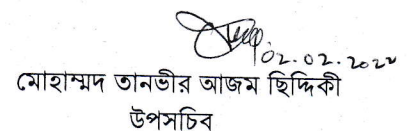 02.02.2022
মোহাম্মদ তানভীর আজম ছিদ্দিকী
উপসচিব